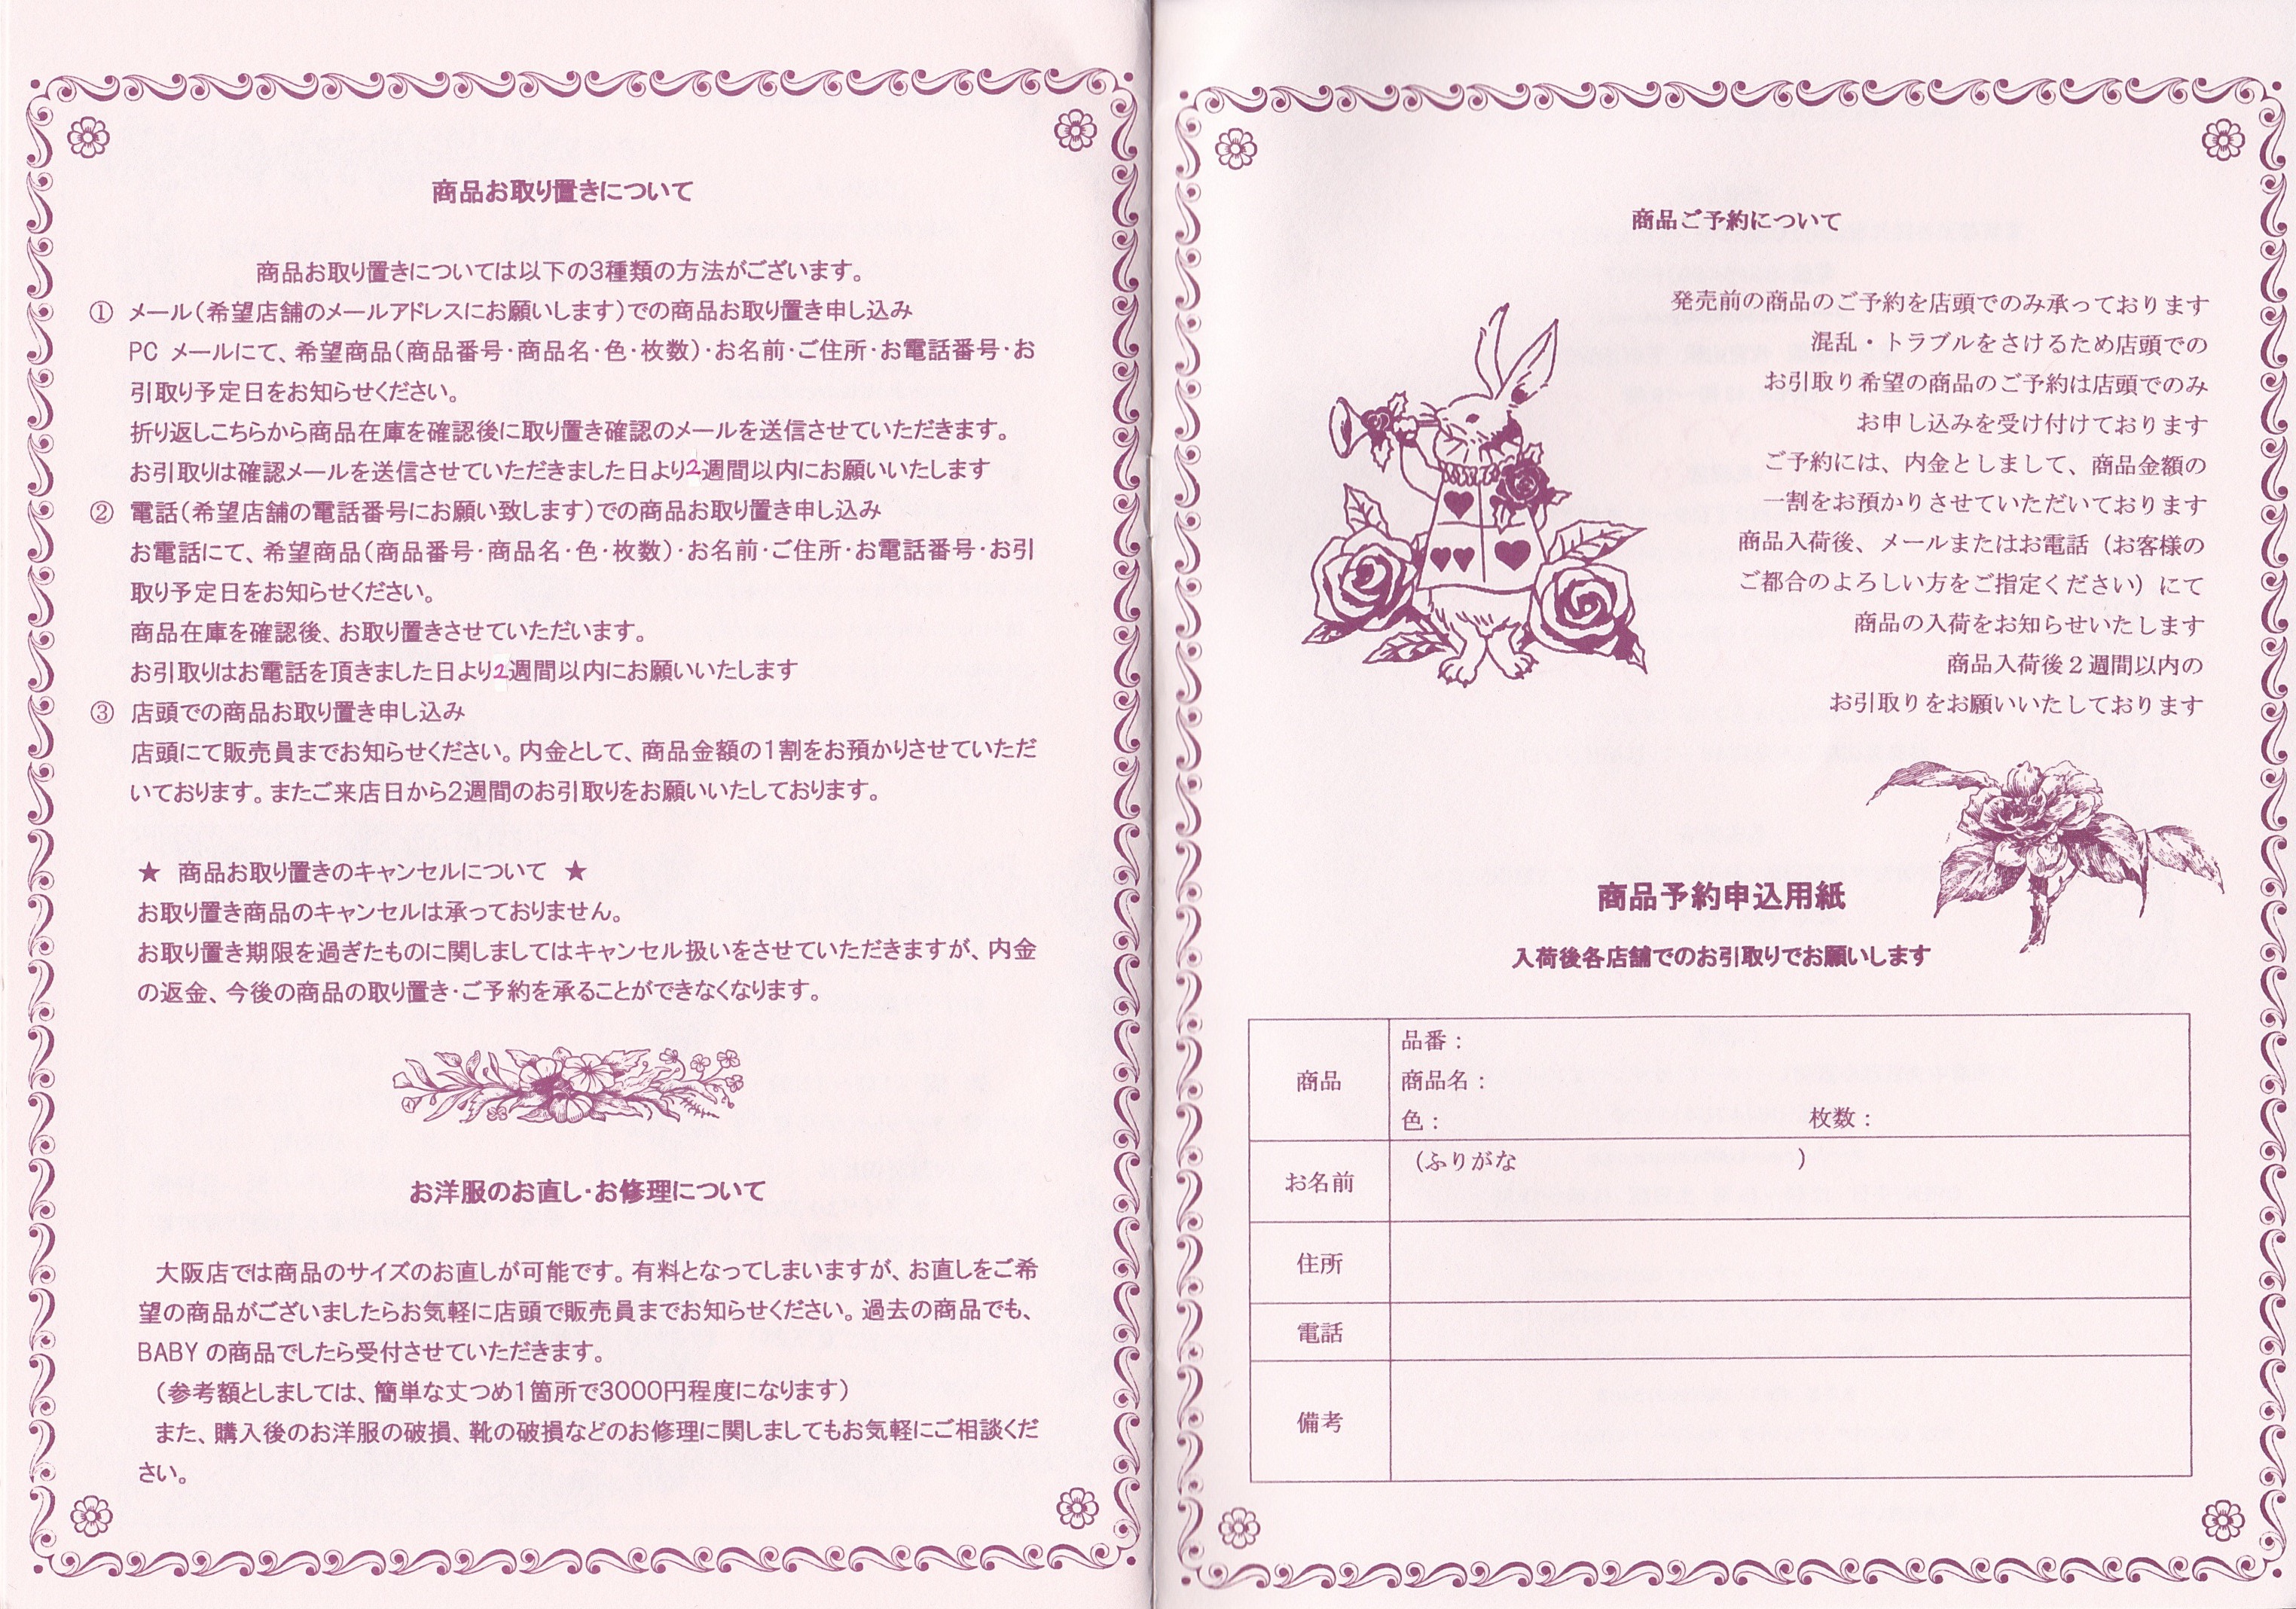 商品お取り置きについて
商品お取り置きについては以下の3種類の方法がございます。
① メール(希望店舗のメールアドレスにお願いします)での商品お取り置き申し込み
PC メールにて、希望商品(商品番号・商品名・色・枚数)・お名前・ご住所・お電話番号・お
引取り予定日をお知らせください。
折り返しこちらから商品在庫を確認後に取り置き確認のメールを送信させていただきます。
お引取りは確認メールを送信させていただきました日より2週間以内にお願いいたします
② 電話(希望店舗の電話番号にお願い致します)での商品お取り置き申し込み
お電話にて、希望商品(商品番号・商品名・色・枚数)・お名前・ご住所・お電話番号・お引
取り予定日をお知らせください。
商品在庫を確認後、お取り置きさせていただいます。
お引取りはお電話を頂きました日より2週間以内にお願いいたします
③ 店頭での商品お取り置き申し込み
店頭にて販売員までお知らせください。内金として、商品金額の1割をお預かりさせていただ
いております。またご来店日から2週間のお引取りをお願いいたしております。
★ 商品お取り置きのキャンセルについて ★
お取り置き商品のキャンセルは承っておりません。
お取り置き期限を過ぎたものに関しましてはキャンセル扱いをさせていただきますが、内金
の返金、今後の商品の取り置き・ご予約を承ることができなくなります。
お洋服のお直し・お修理について
大阪店では商品のサイズのお直しが可能です。有料となってしまいますが、お直しをご希
望の商品がございましたらお気軽に店頭で販売員までお知らせください。過去の商品でも、
BABY の商品でしたら受付させていただきます。
(参考額としましては、簡単な丈つめ1箇所で3000円程度になります)
また、購入後のお洋服の破損、靴の破損などのお修理に関しましてもお気軽にご相談くだ
さい。
商品ご予約について
発売前の商品のご予約を店頭でのみ承っております
混乱・トラブルをさけるため店頭での
お引取り希望の商品のご予約は店頭でのみ
お申し込みを受け付けております
ご予約には、内金としまして、商品金額の
一割をお預かりさせていただいております
商品入荷後、メールまたはお電話（お客様の
ご都合のよろしい方をご指定ください）にて
商品の入荷をお知らせいたします
商品入荷後２週間以内の
お引取りをお願いいたしております
商品予約申込用紙
入荷後各店舗でのお引取りでお願いします
商品
品番：
商品名：
色： 枚数：
お名前
（ふりがな ）
住所
電話
備考